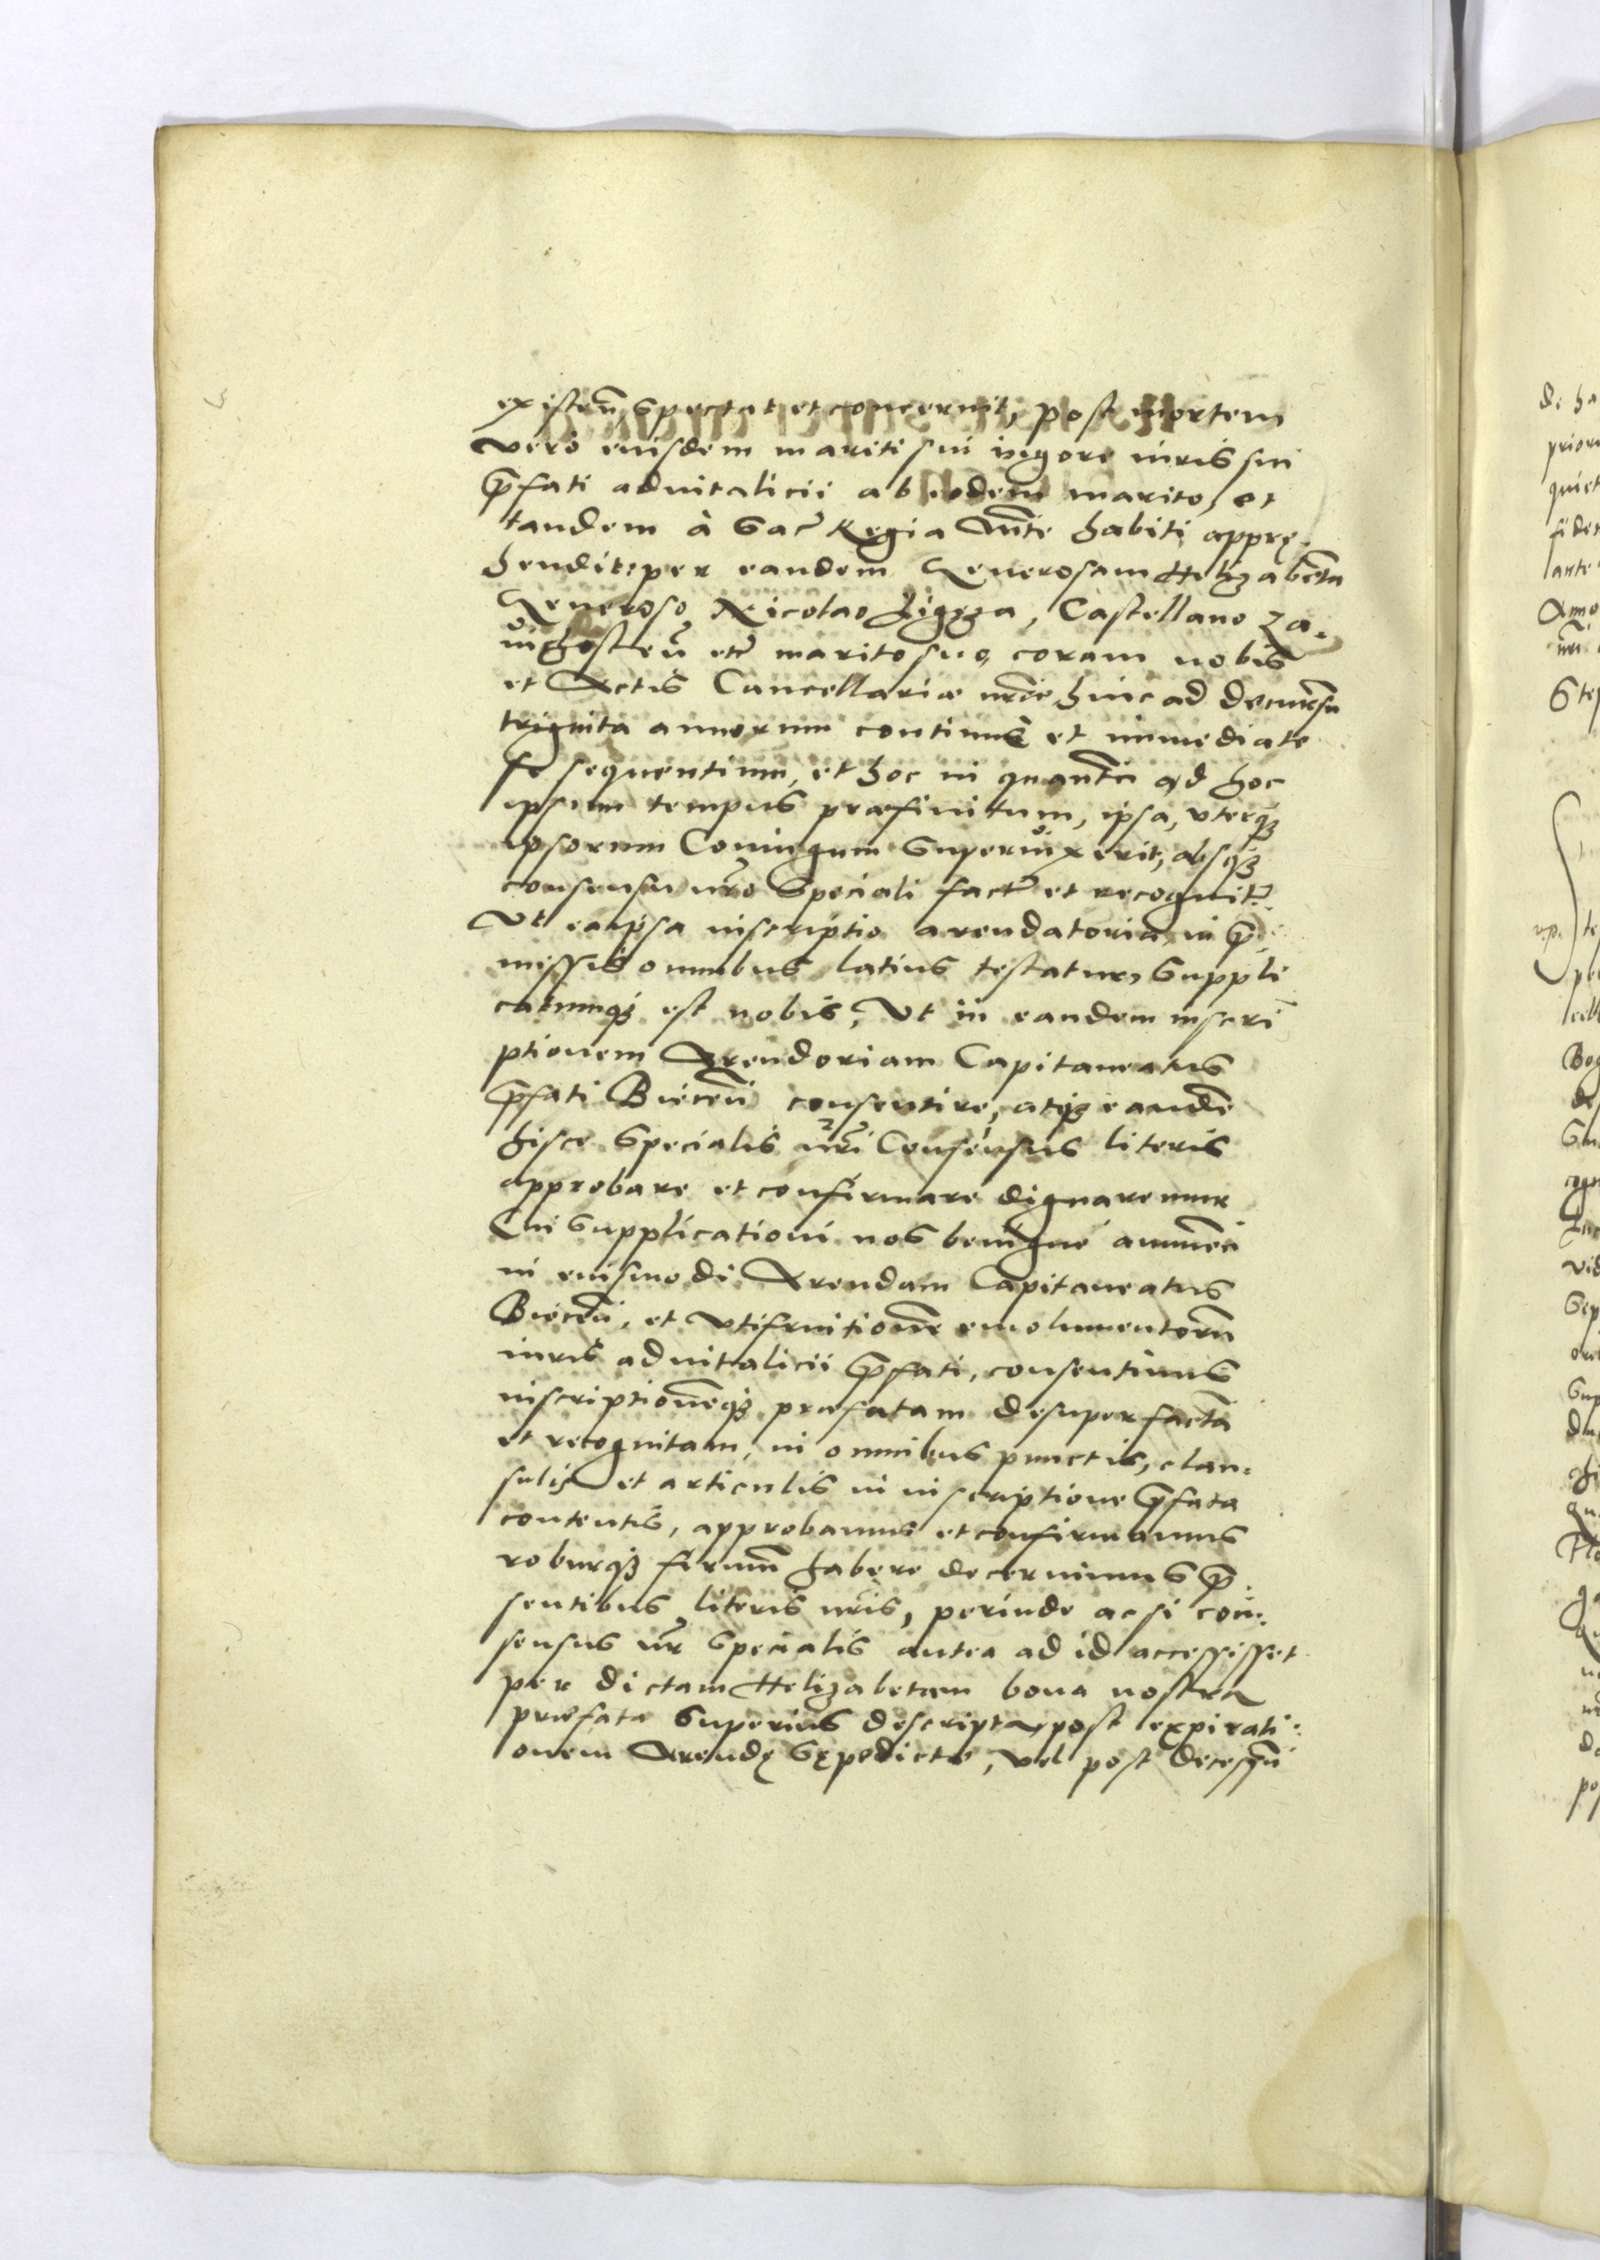 existeñ, spectat et concernit, post mortem
vero eiusdem mariti sui vigore iuris sui
p̄fati aduitalicii ab eodem marito, et
tandem à Sac̄ Regia Mtē habiti apprę-
hendit: per eandem Generosam Helizabetā
Generoso Nicolao Ligęza, Castellano Za-
vichosteñ etc̄ marito suo, coram nobis
et Actis Cancellariæ nr̄ae, hinc ad decursū
triginta annorum continuè et immediate
se sequentium, et hoc in quantū ad hoc
ipsum tempus præfinitum, ipsa, uterq3
ipsorum Coniugum superuixerit, absq3
consensu nr̄o speciali fact̄ et recognit̄.
Ut ea ipsa inscriptio arendatoria in p̄-
missis omnibus latius testatur, Suppli
catumq3 est nobis, Ut in eandem inscri
ptionem Arendoriam Capitaneatus
p̄fati Biecēn consentire, atq3 eandē
hisce specialis nr̄i Consensus literis
approbare et confirmare dignaremur
Cui supplicationi nos benigne annuēn
in eiusmodi Arendam Capitaneatus
Biecēn, et utifruitionē emolumentorū
iuris aduitalicii p̄fati, consentimus
inscriptionēq3 præfatam desuper factā
et recognitam, in omnibus punctis, clau-
sulis et articulis in inscriptione p̄fata
contentis, approbamus et confirmamus
roburq3 firmū habere decernimus p̄-
sentibus literis nr̄is, perinde ac si con-
sensus nr̄ specialis antea ad id accessisset
per dictam Helizabetam bona nostra
præfata superius descripta, post expirati-
onem Arendę sępedictæ, vel post decessū